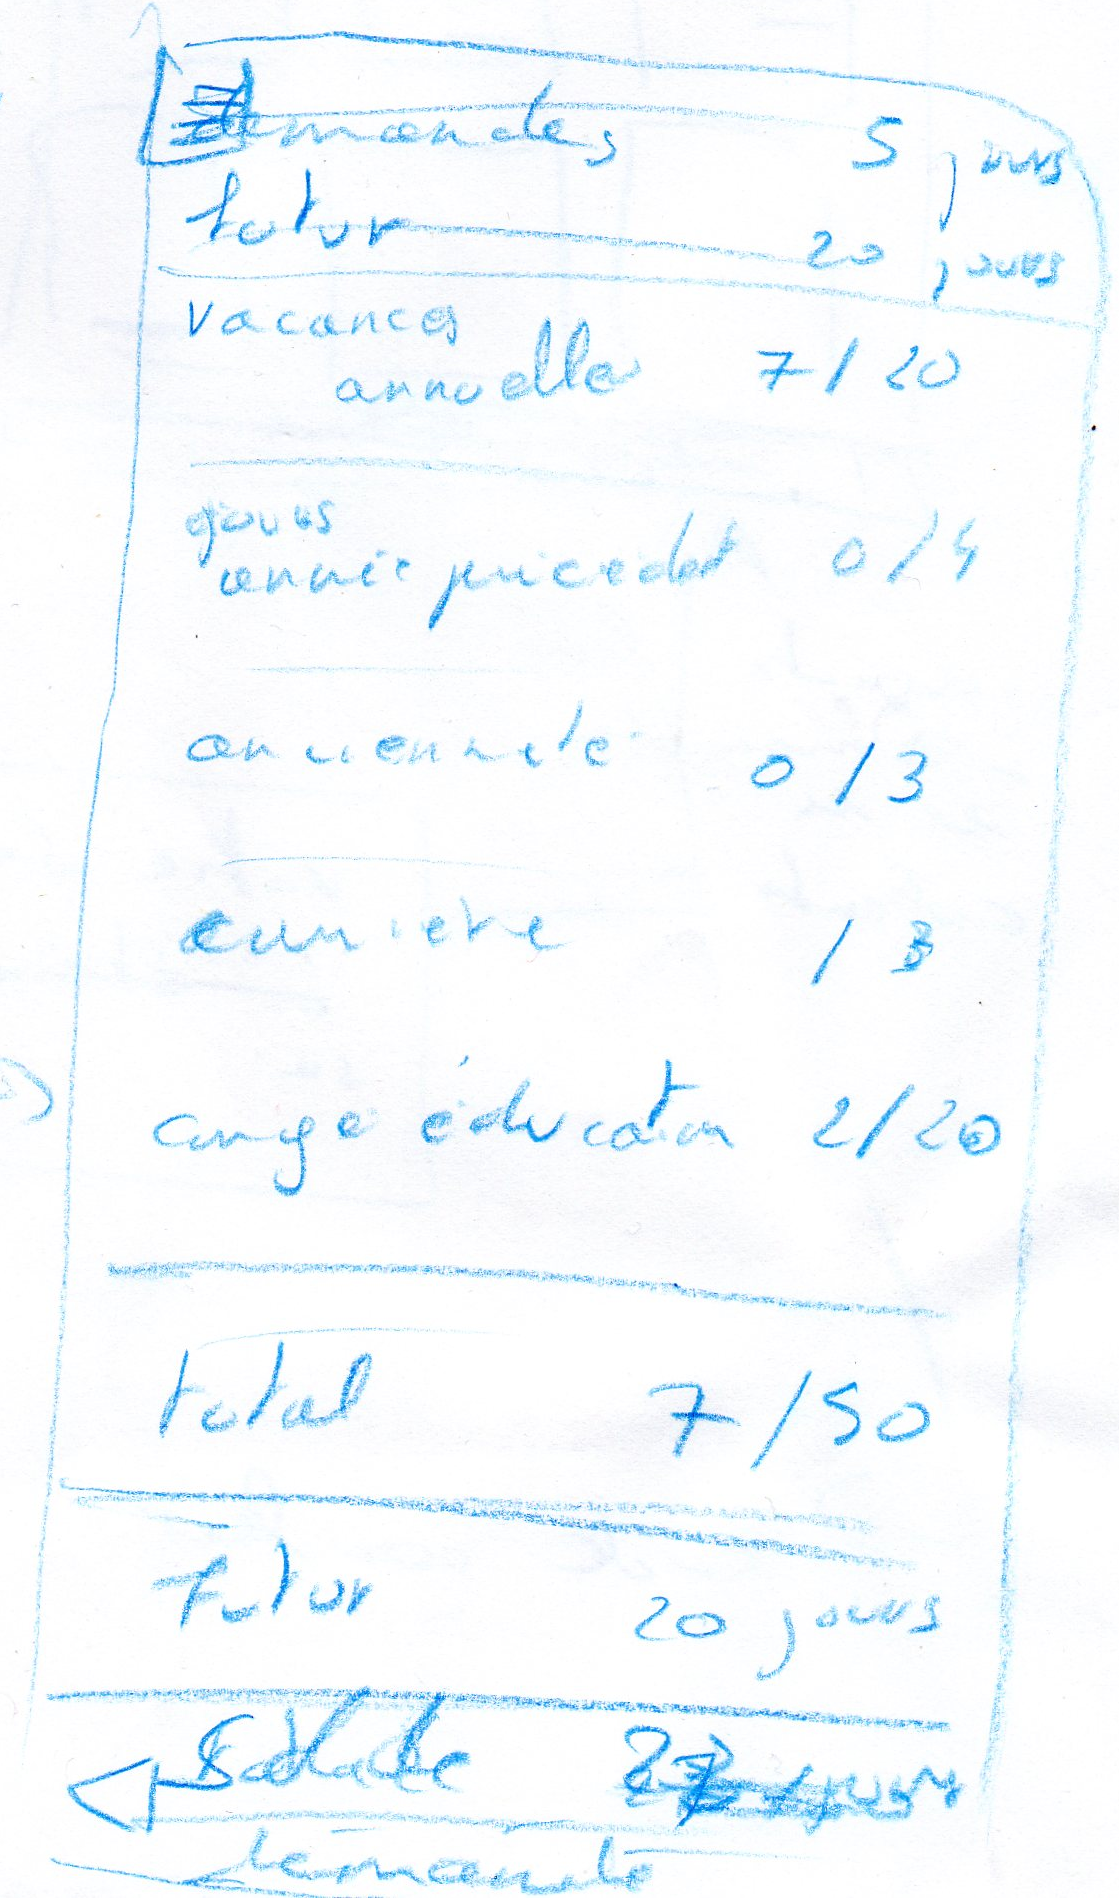 demandes 5 jours
futur 20 jours
vacances
annuelles 7/20
jours
année précedet 0/4
anciennete 0/3
/3
conge éducation 2/20
total 7/50
Futur 20 jours
Solde
demande